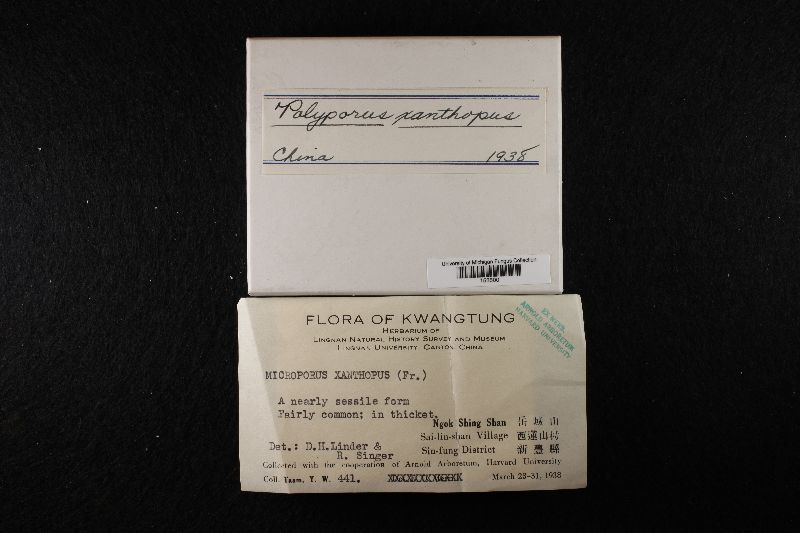 Polyporus xanthopus
China 1938
University of Michigan Fungus Collection
FLORA OF KWANGTUNG
HERBARIUM OF
LINGNAN NATURAL HISTORY SURVEY AND MUSEUM
LINGNAN UNIVERSITY, CANTON, CHINA
EX HERB.
ARNOLD ARBORETUM
HARVARD UNIVERSITY
MICROPORUS XANTHOPUS (Fr.)
A nearly sessile form
Fairly common; in thicket.
Ngok Shing Shan 岳城山
Sai-lin-shan Village 西蓮山村
Det.: D.H.Linder & Sin-fung District 新豐縣
R. Singer
Collected with the cooperation of Arnold Arboretum, Harvard University
Coll. Tsam, Y. W. 441. March 23-31, 1938